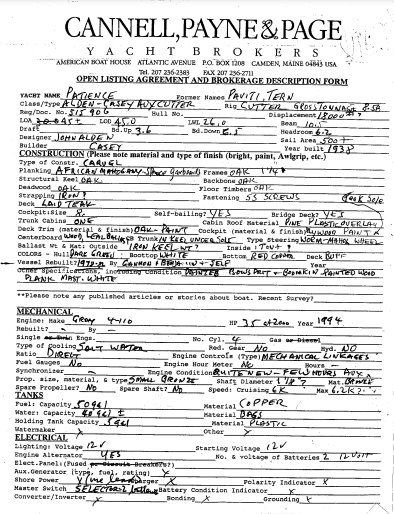 CANNELL, PAYNE & PAGE
YACHT BROKERS
AMERICAN BOAT HOUSE ATLANTIC AVENUE P.O. BOX 1208 CAMDEN, MAINE 04843 USA
Tel. 207 236-2383 FAX 207 236-2711
OPEN LISTING AGREEMENT AND BROKERAGE DESCRIPTION FORM
YACHT NAME PATIENCE Former Names PAVITI, TERN
Class/Type ALDEN-CASEY AUX CUTTER Rig CUTTER GROSSTONNAGE
Reg/Doc. No. Hull No. Displacement
LOA 45.0 LWL 26.0 Beam 10.5
Draft Bd.Up 3.6 Bd.Down 6.5 Headroom 6.2
Designer JOHN ALDEN Sail Area 500 ±
Builder CASEY Year built 1938
CONSTRUCTION (Please note material and type of finish (bright, paint, Awlgrip, etc.)
Type of CARVEL
Planking AFRICAN MAHOGANY Frames OAK
Structural Keel OAK Backbone OAK
Deadwood OAK Floor Timbers OAK
Strapping IRON? Fastening SS SCREWS
Deck LAID TEAK
Cockpit:Size Self-bailing? YES Bridge Deck? YES
Trunk Cabin ONE Cabin Roof Material PINE PLASTIC OVERLAY
Deck Trim (material & finish) OAK PAINT Cockpit (material & finish) PLYWOOD PAINT
Centerboard WOOD Trunk IN KEEL UNDER SOLE Type Steering WORM-MAHOG WHEEL
Ballast Wt & Mat: Outside IRON KEEL WT? Inside 1 TON± ?
COLORS - Hull DARK GREEN Boottop WHITE Bottom RED COPPER Deck BUFF
Vessel Rebuilt? By Year
Other Specifications, including Condition PAINTED BOWSPRIT & BOOMKIN PAINTED WOOD
PLANK MAST. WHITE
**Please note any published articles or stories about boat. Recent Survey?
MECHANICAL
Engine: Make GRAY 4-110 HP 35 Year 1994
Rebuilt? - By -
Single Engs. No. Cyl. 4 Gas
Type of Cooling SALT WATER Red. Gear NO Hyd. NO
Ratio DIRECT Engine Controls (Type) MECHANICAL LINKAGES
Fuel Gauges NO Engine Hour Meter NO Hours -
Synchronizer - Engine Condition QUITE NEW - FEW HOURS
Prop. size, material, & type SMALL BRONZE Shaft Diameter 1 1/8"? Mat. BRONZE
Spare Propeller? NO Spare Shaft? NO Speed: Cruising 6K Max 6.2K?
TANKS
Fuel: Capacity 50 gal Material COPPER
Water: Capacity 40 gal ± Material BAGS
Holding Tank Capacity 5 gal Material PLASTIC
Watermaker X Other X
ELECTRICAL
Lighting: Voltage 12V Starting Voltage 12V
Engine Alternator YES No. & voltage of Batteries 2 12 VOLT
Elect.Panel:(Fused or Circuit Breakers?)
Aux.Generator (type, fuel, rating) X
Shore Power Charger X Polarity Indicator X
Master Switch SELECTOR Battery Condition Indicator X
Converter/Inverter X Bonding X Grounding X